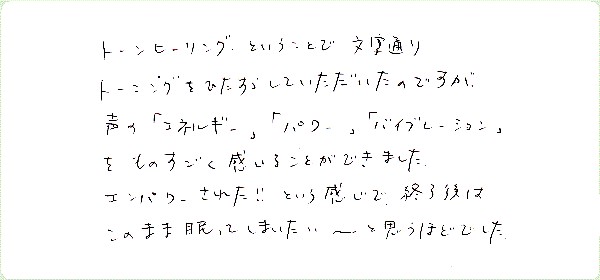 トーンヒーリング、ということで 文字通り
トーニングをひたすらしていただいたのですが、
声の「エネルギー」、「パワー」、「バイブレーション」
を ものすごく 感じることができました。
エンパワーされた!! という感じで、終了後は
このまま眠ってしまいたい 〜 と思うほどでした。